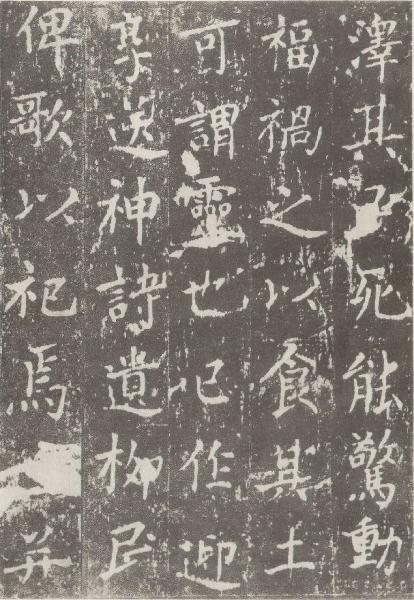 澤其民死能驚動
福禍之以食其土
可謂靈也已作迎
享送神詩遺柳民
俾歌以祀焉并